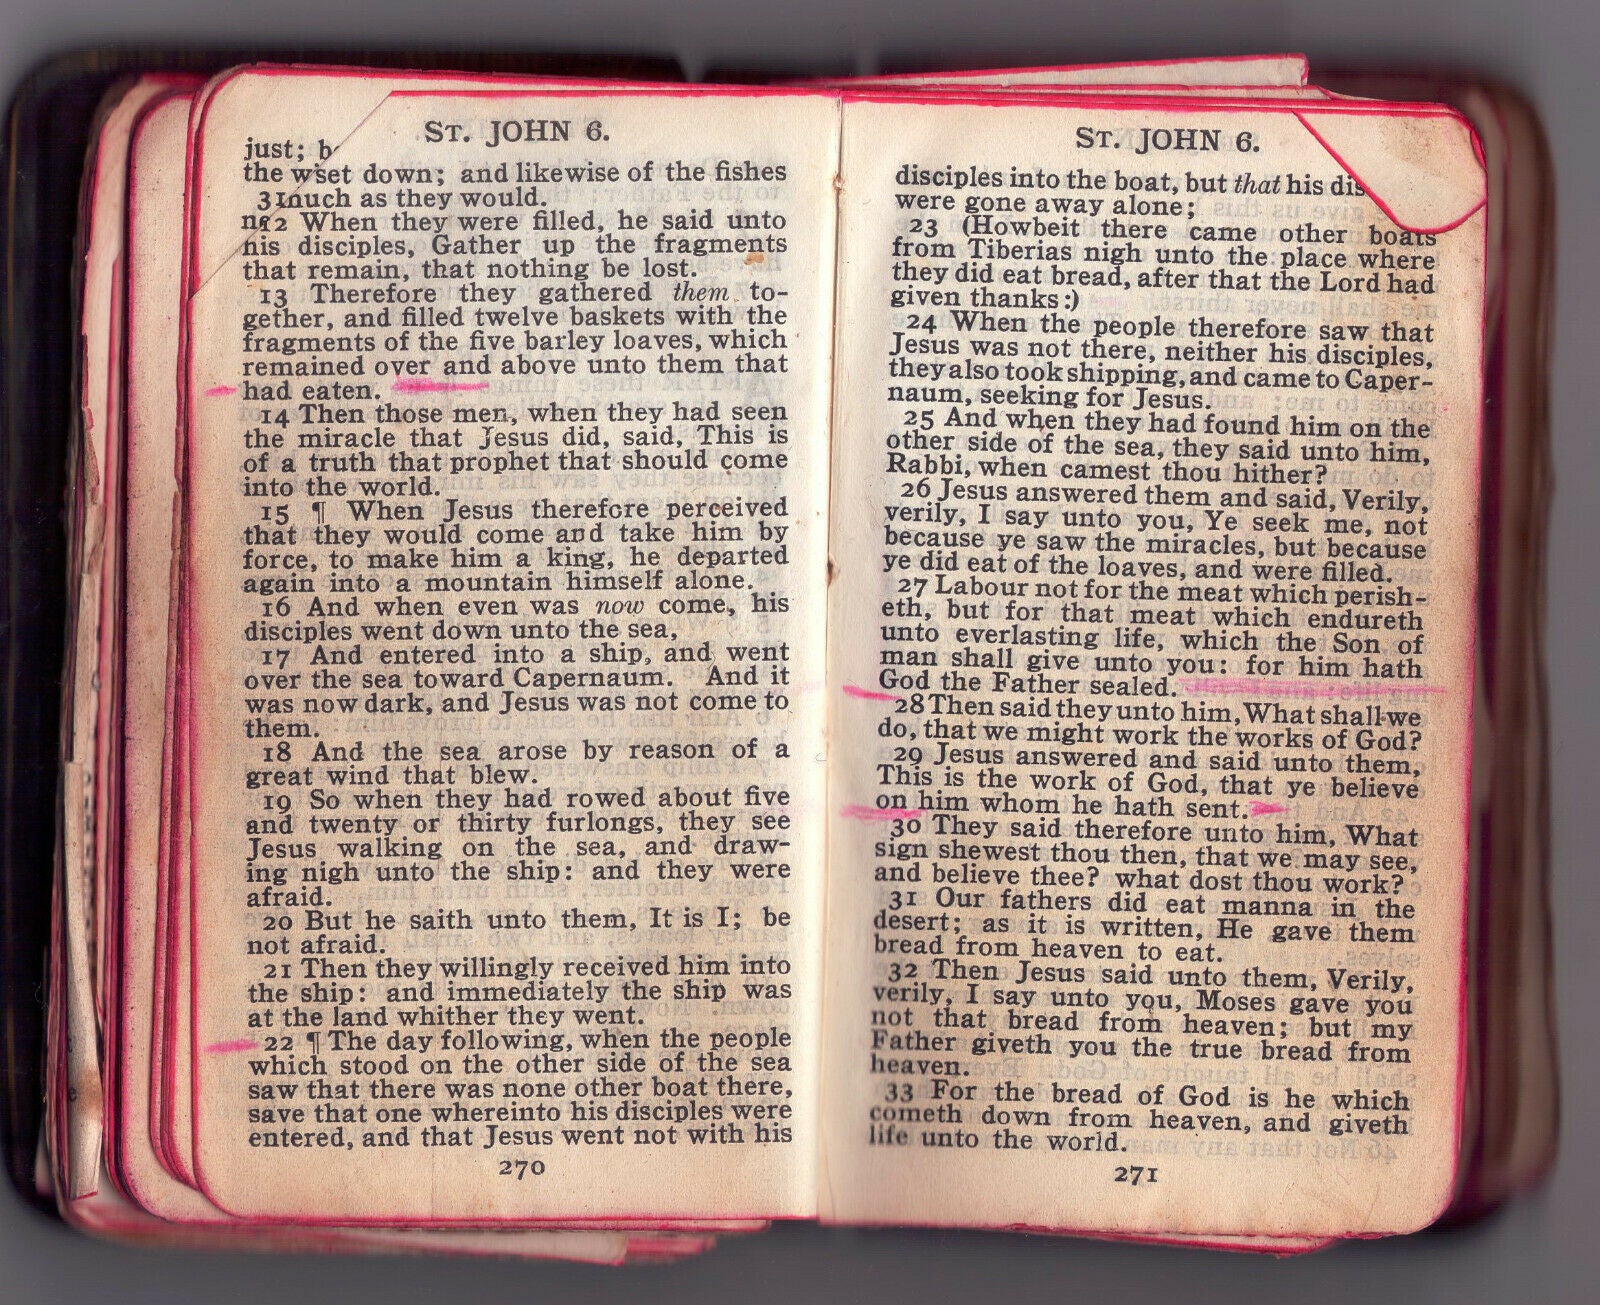 ST. JOHN 6.
just; b
the wset down; and likewise of the fishes
31much as they would.
12 When they were filled, he said unto
his disciples, Gather up the fragments
that remain, that nothing be lost.
13 Therefore they gathered them to-
gether, and filled twelve baskets with the
fragments of the five barley loaves, which
remained over and above unto them that
had eaten.
14 Then those men, when they had seen
the miracle that Jesus did, said, This is
of a truth that prophet that should come
into the world.
15 ¶ When Jesus therefore perceived
that they would come and take him by
force, to make him a king, he departed
again into a mountain himself alone.
16 And when even was now come, his
disciples went down unto the sea,
17 And entered into a ship, and went
over the sea toward Capernaum. And it
was now dark, and Jesus was not come to
them.
18 And the sea arose by reason of a
great wind that blew.
19 So when they had rowed about five
and twenty or thirty furlongs, they see
Jesus walking on the sea, and draw-
ing nigh unto the ship: and they were
afraid.
20 But he saith unto them, It is I; be
not afraid.
21 Then they willingly received him into
the ship: and immediately the ship was
at the land whither they went.
22 ¶ The day following, when the people
which stood on the other side of the sea
saw that there was none other boat there,
save that one whereinto his disciples were
entered, and that Jesus went not with his
270
ST. JOHN 6.
disciples into the boat, but that his dis
were gone away alone;
23 (Howbeit there came other boats
from Tiberias nigh unto the place where
they did eat bread, after that the Lord had
given thanks:)
24 When the people therefore saw that
Jesus was not there, neither his disciples,
they also took shipping, and came to Caper-
naum, seeking for Jesus.
25 And when they had found him on the
other side of the sea, they said unto him,
Rabbi, when camest thou hither?
26 Jesus answered them and said, Verily,
verily, I say unto you, Ye seek me, not
because ye saw the miracles, but because
ye did eat of the loaves, and were filled.
27 Labour not for the meat which perish-
eth, but for that meat which endureth
unto everlasting life, which the Son of
man shall give unto you: for him hath
God the Father sealed.
28 Then said they unto him, What shall we
do, that we might work the works of God?
29 Jesus answered and said unto them,
This is the work of God, that ye believe
on him whom he hath sent.
30 They said therefore unto him, What
sign shewest thou then, that we may see,
and believe thee? what dost thou work?
31 Our fathers did eat manna in the
desert; as it is written, He gave them
bread from heaven to eat.
32 Then Jesus said unto them, Verily,
verily, I say unto you, Moses gave you
not that bread from heaven; but my
Father giveth you the true bread from
heaven.
33 For the bread of God is he which
cometh down from heaven, and giveth
life unto the world.
271